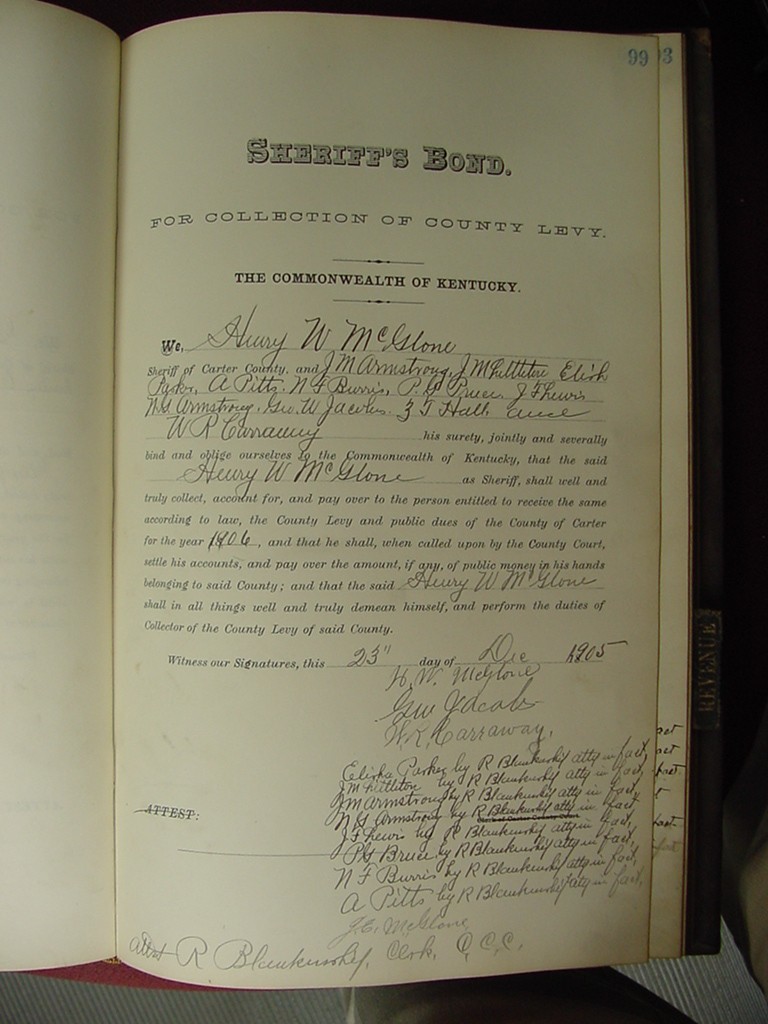 99 93
SHERIFF'S BOND.
FOR COLLECTION OF COUNTY LEVY.
THE COMMONWEALTH OF KENTUCKY.
We, Henry W McGlone
Sheriff of Carter County, and J M Armstrong, J M Littleton Elisha
Parker, A Pitts, N F Burris, P. G Bruce, J F Lewis
N G Armstrong, Geo. W Jacobs, Hall and
W R Carraway his surety, jointly and severally
bind and oblige ourselves to the Commonwealth of Kentucky, that the said
Henry W McGlone as Sheriff, shall well and
truly collect, account for, and pay over to the person entitled to receive the same
according to law, the County Levy and public dues of the County of Carter
for the year 1906, and that he shall, when called upon by the County Court,
settle his accounts, and pay over the amount, if any, of public money in his hands
belonging to said County; and that the said Henry W McGlone
shall in all things well and truly demean himself, and perform the duties of
Collector of the County Levy of said County.
Witness our Signatures, this 23" day of Dec 1905
H. W. McGlone
Geo Jacobs
W. R. Carraway,
Elisha Parker by R Blankenship atty in fact,
J M Littleton by R Blankenship atty in fact,
J M Armstrong by R Blankenship atty in fact,
N G Armstrong by R Blankenship atty in fact,
ATTEST: Clerk of Carter County Court
J F Lewis by R Blankenship atty in fact,
P G Bruce by R Blankenship atty in fact,
N F Burris by R Blankenship atty in fact,
A Pitts by R Blankenship atty in fact,
McGlone
Attest R Blankenship, Clerk, C. C. C.
REVENUE